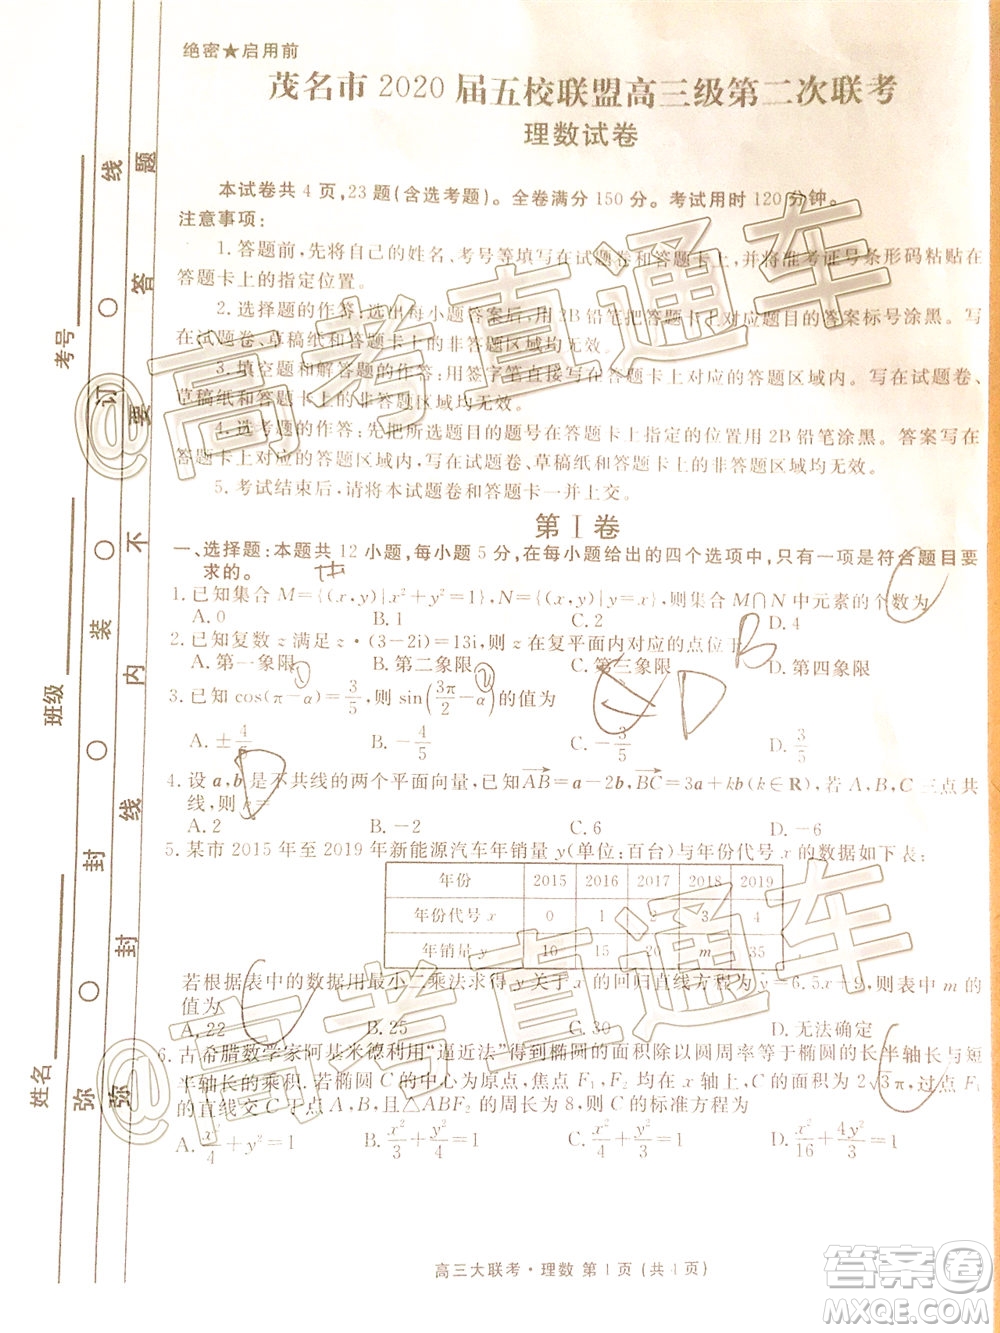 绝密★启用前
茂名市 2020 届五校联盟高三级第二次联考
理数试卷
本试卷共 4 页,23 题(含选考题)。全卷满分 150 分。考试用时 120 分钟。
注意事项:
1. 答题前,先将自己的姓名、考号等填写在试题卷和答题卡上,并将准考证号条形码粘贴在
答题卡上的指定位置。
2. 选择题的作答:每小题答案选出后,用 2B 铅笔把答题卡上对应题目的答案标号涂黑。写在
试题卷、草稿纸和答题卡上的非答题区域均无效。
3. 填空题和解答题的作答:用签字笔直接写在答题卡上对应的答题区域内。写在试题卷、
草稿纸和答题卡上的非答题区域均无效。
4. 选考题的作答:先把所选题目的题号在答题卡上指定的位置用 2B 铅笔涂黑。答案写在
答题卡上对应的答题区域内,写在试题卷、草稿纸和答题卡上的非答题区域均无效。
5. 考试结束后,请将本试题卷和答题卡一并上交。
第 I 卷
一、选择题:本题共 12 小题,每小题 5 分,在每小题给出的四个选项中,只有一项是符合题目要
求的。
1. 已知集合 M={(x,y)|x²+y²=1},N={(x,y)|y=x},则集合 M∩N 中元素的个数为
A. 0 B. 1 C. 2 D. 4
2. 已知复数 z 满足 z·(3-2i)=13i,则 z 在复平面内对应的点位于 B
A. 第一象限 B. 第二象限 C. 第三象限 D. 第四象限
3. 已知 cos(π-α)=3/5,则 sin(3π/2-α)的值为 D
A. ±4/5 B. -4/5 C. -3/5 D. 3/5
4. 设 a,b 是不共线的两个平面向量,已知AB=a-2b,BC=3a+kb(k∈R),若 A,B,C 三点共
线,则 k=
D
A. 2 B. -2 C. 6 D. -6
5. 某市 2015 年至 2019 年新能源汽车年销量 y(单位:百台)与年份代号 x 的数据如下表:
年份 2015 2016 2017 2018 2019
年份代号 x 0 1 2 3 4
年销量 y 10 15 20 m 35
若根据表中的数据用最小二乘法求得 y 关于 x 的回归直线方程为 y=6.5x+9,则表中 m 的
值为
A. 22 B. 25 C. 30 D. 无法确定
6. 古希腊数学家阿基米德利用“逼近法”得到椭圆的面积除以圆周率等于椭圆的长半轴长与短
半轴长的乘积. 若椭圆 C 的中心为原点,焦点 F₁,F₂ 均在 x 轴上,C 的面积为 2√3π,过点 F₁
的直线交 C 于点 A,B,且△ABF₂ 的周长为 8,则 C 的标准方程为
A. x²/4+y²=1 B. x²/3+y²/4=1 C. x²/4+y²/3=1 D. x²/16+4y²/3=1
高三大联考·理数 第 1 页(共 4 页)
考号
班级
姓名
弥 封 装 订 线
弥 封 线 内 不 要 答 题
@高考直通车
@高考直通车
答案圈
MXQE.COM